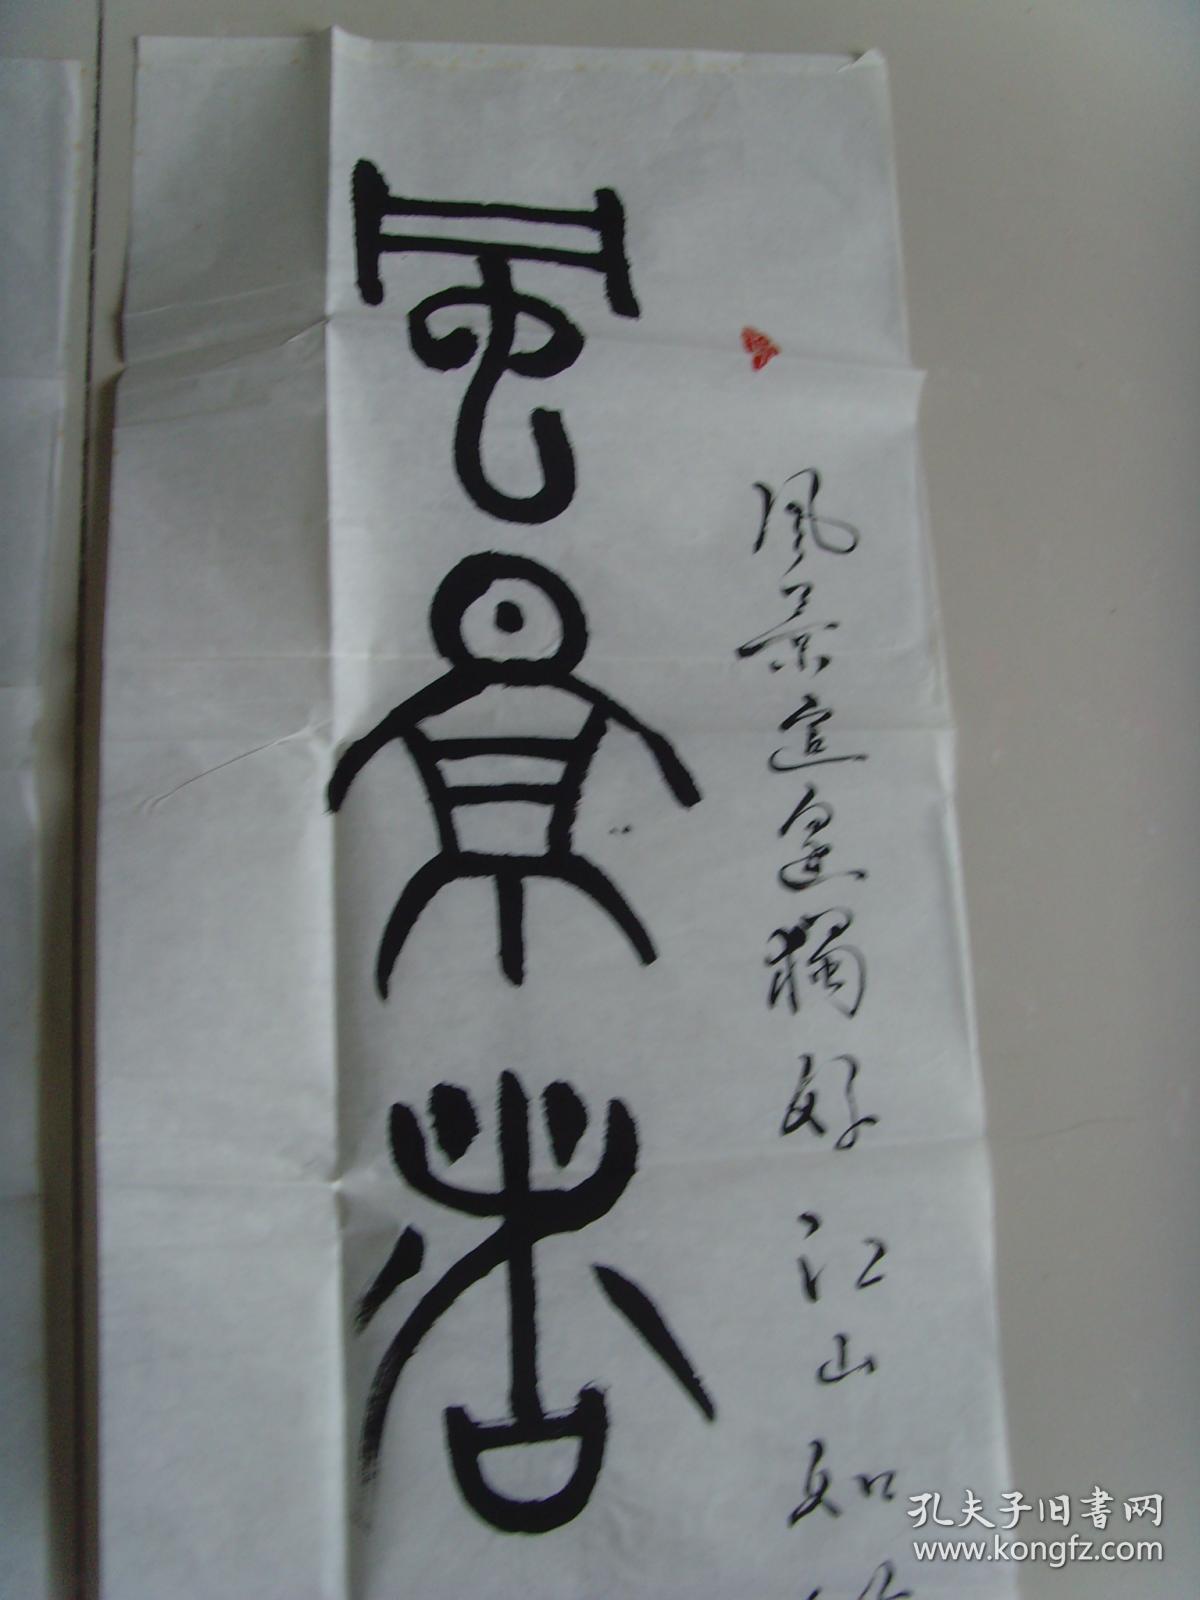 風景
風景這邊獨好江山如
孔夫子旧书网
www.kongfz.com